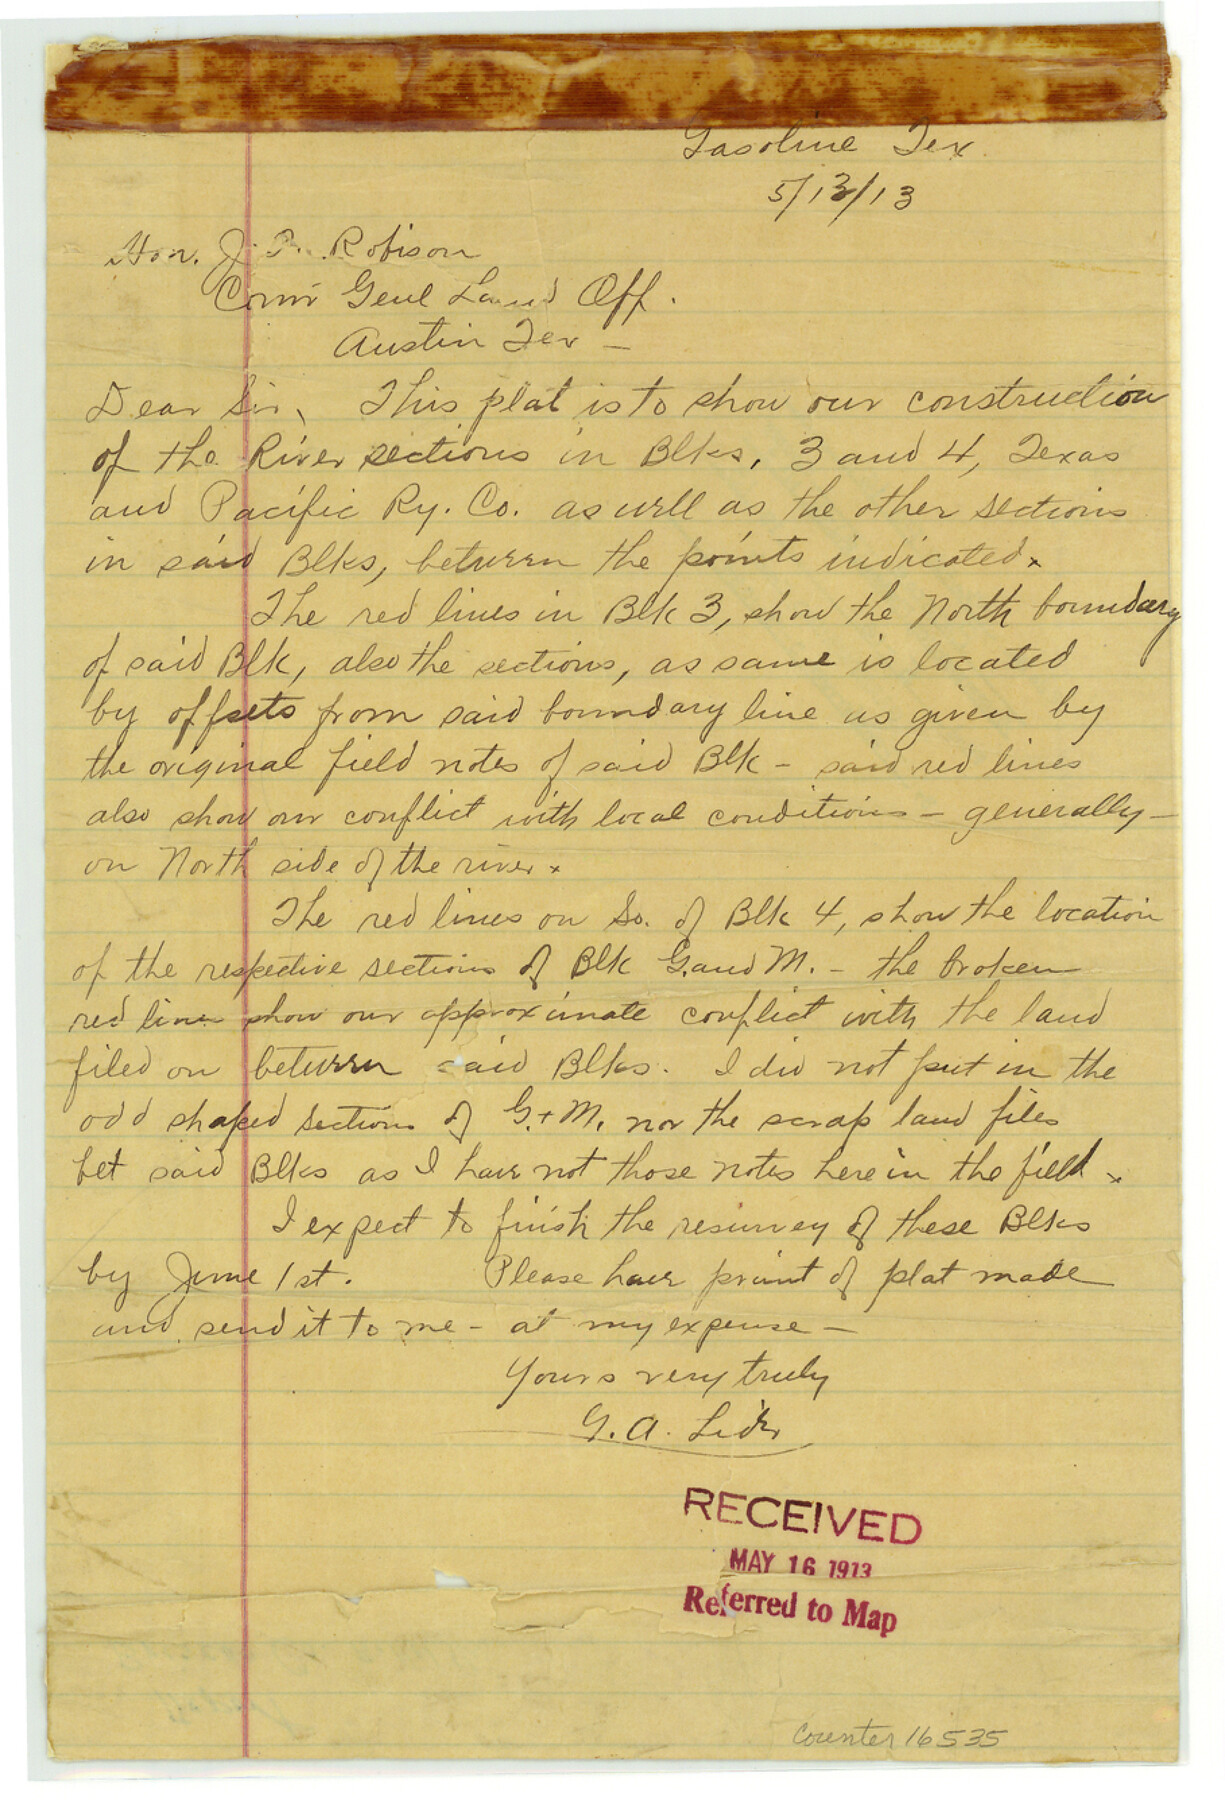 Gasoline Tex.
5/13/13
Hon. J. T. Robison
Com'r Genl Land Off.
Austin Tex —
Dear Sir, This plat is to show our construction
of the River sections in Blks, 3 and 4, Texas
and Pacific Ry. Co. as well as the other sections
in said Blks, between the points indicated.
The red lines in Blk 3, show the North boundary
of said Blk, also the sections, as same is located
by offsets from said boundary line as given by
the original field notes of said Blk - said red lines
also show our conflict with local conditions - generally -
on North side of the river.
The red lines on So. of Blk 4, show the location
of the respective sections of Blk G. and M. - the broken
red lines show our approximate conflict with the land
filed on between said Blks. I did not put in the
odd shaped sections of G. + M. nor the scrap land files
bet said Blks as I have not those notes here in the field.
I expect to finish the resurvey of these Blks
by June 1st. Please have print of plat made
and send it to me - at my expense —
Yours very truly
G. A.
RECEIVED
MAY 16 1913
Referred to Map
Counter 16535